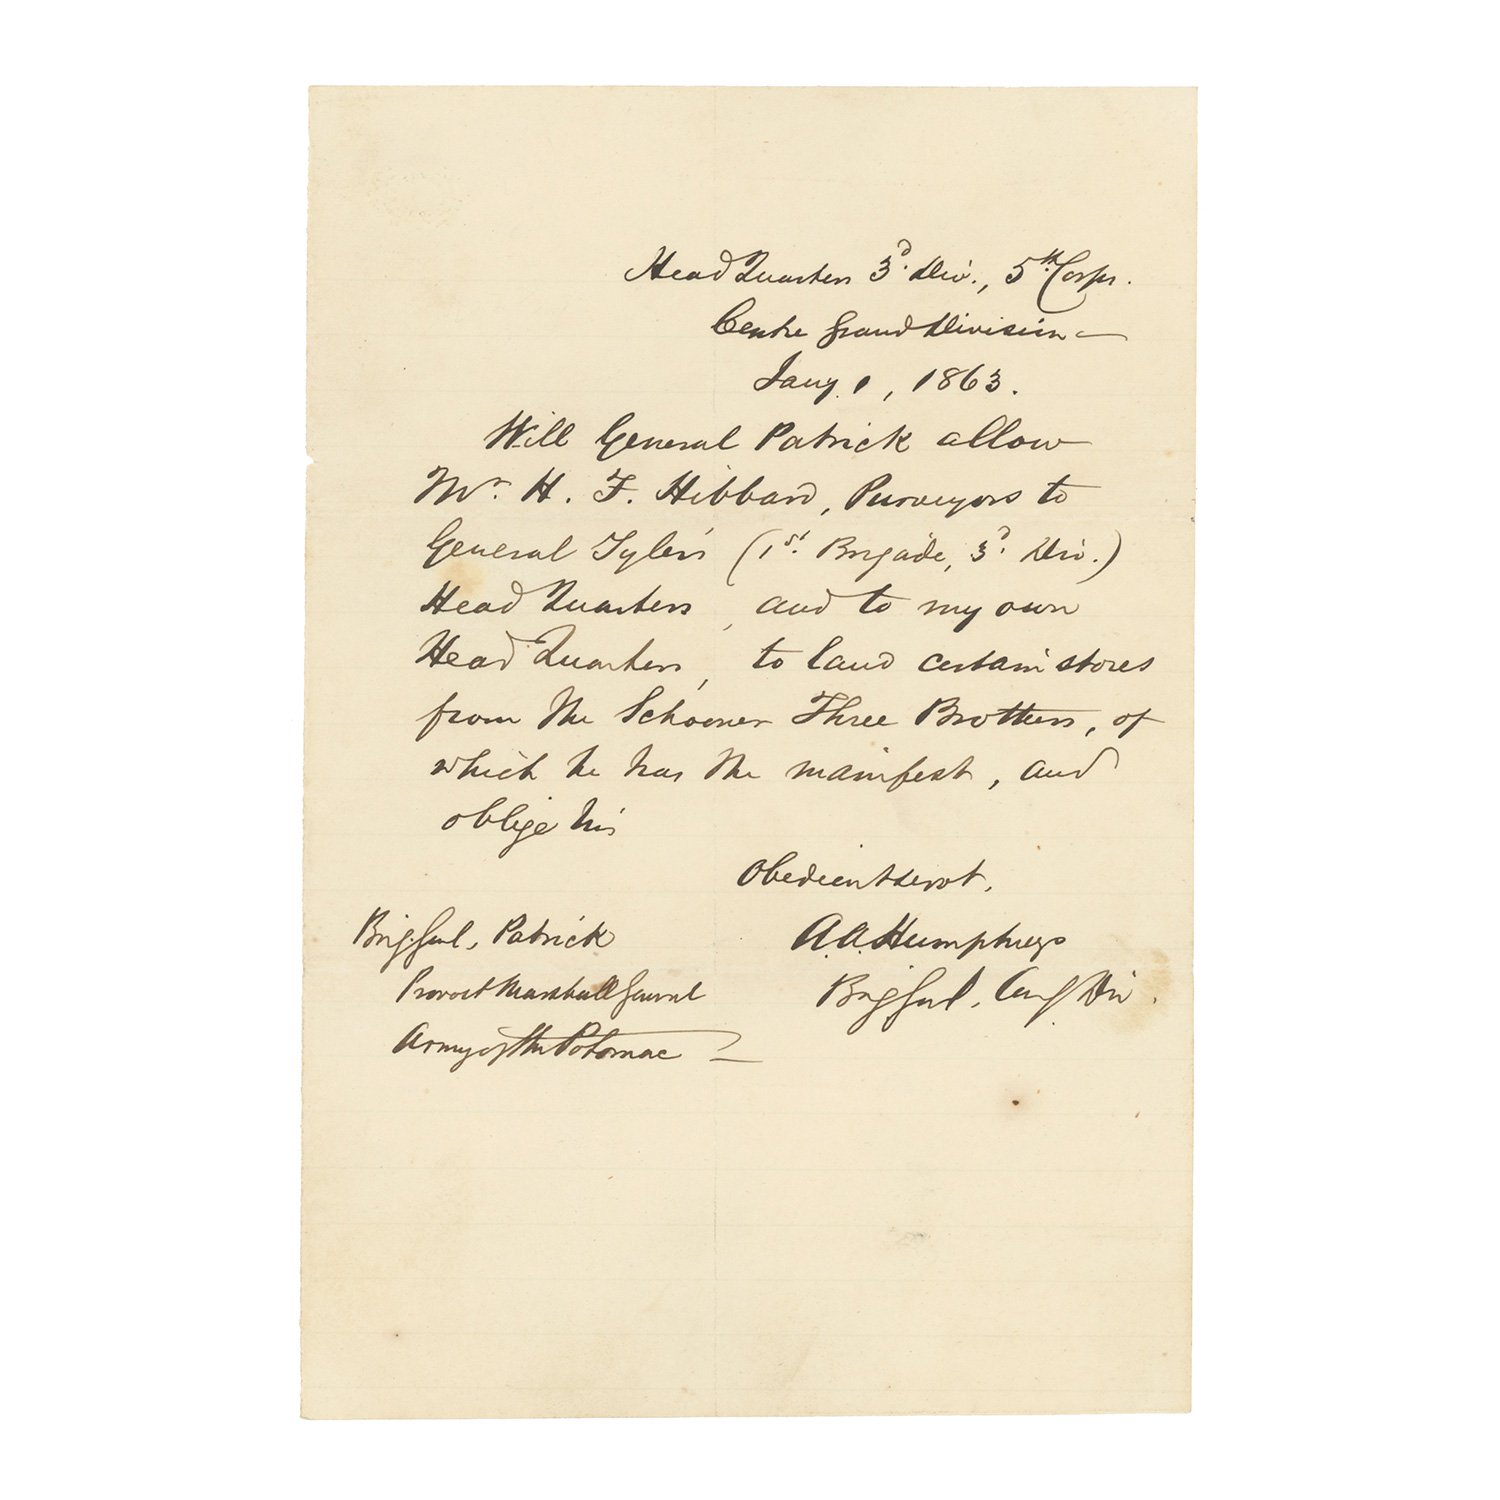 Head Quarters 3d. Div., 5th. Corps.
Centre Grand Division —
Jany. 1, 1863.
Will General Patrick allow
Mr. H. F. Hibbard, Purveyors to
General Tyler's (1st. Brigade, 3d. Div.)
Head Quarters, and to my own
Head Quarters, to land certain stores
from the Schooner Three Brothers, of
which he has the manifest, and
oblige his
Obedient servt.
A. A. Humphreys
Brig Genl, Comg Div.
Brig. Genl. Patrick
Provost Marshall General
Army of the Potomac —